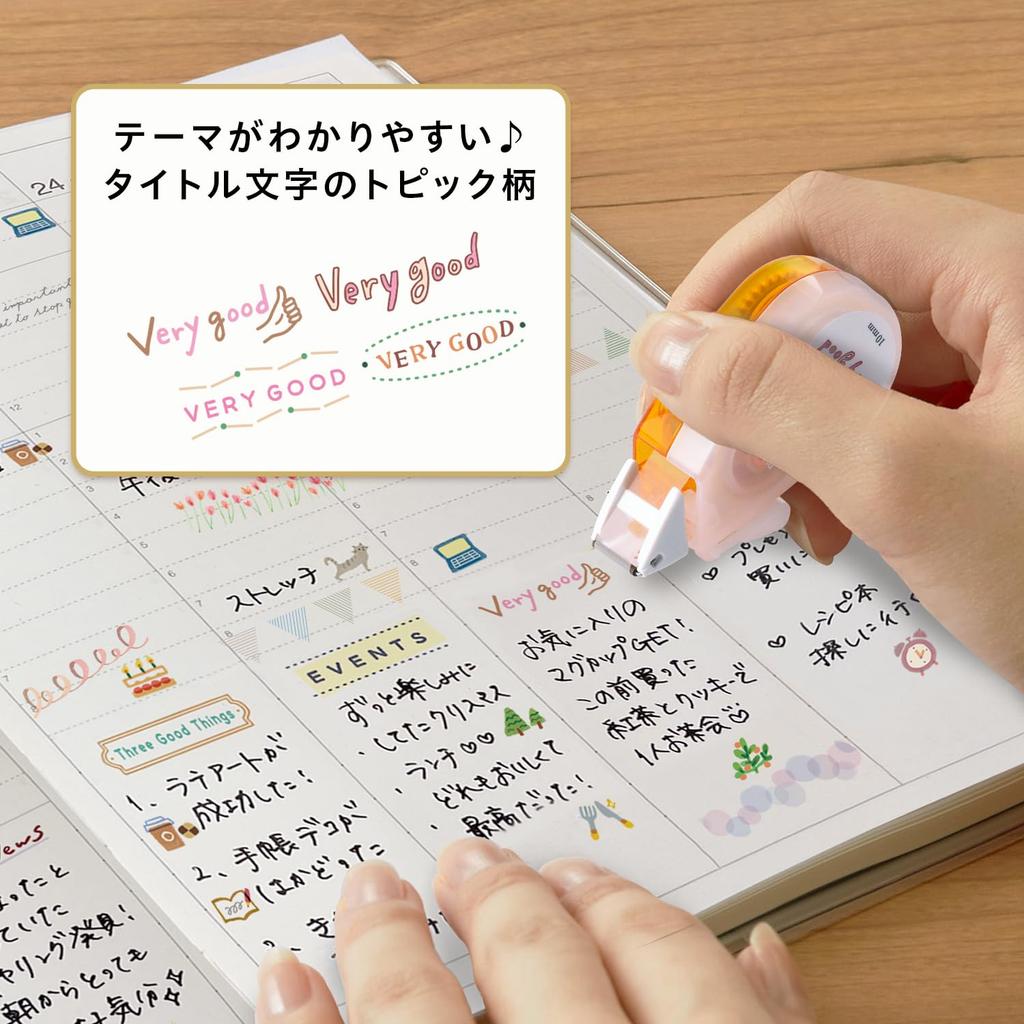 テーマがわかりやすい♪
タイトル文字のトピック柄
Very good
Very good
VERY GOOD
VERY GOOD
24
12
1
2
3
4
5
6
7
8
10mm
ストレッチ
EVENTS
ずっと楽しみに
・してたクリスマス
ランチ♡♡
・どれもおいしくて
・最高だった!
Three Good Things
1、ラテアートが
成功した!
2、手帳デコが
はかどった
Very good
お気に入りの
マグカップGET!
この前買った
紅茶とクッキーで
1人お茶会♡
買いに
♡ レシピ本
探しに行く
News
ていた
朝からとっても